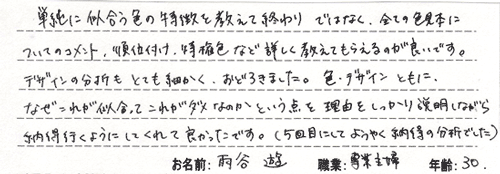 単純に似合う色の特徴を教えて終わり ではなく、全ての色見本に
ついてのコメント、順位付け、特権色など詳しく教えてもらえるのが良いです。
デザインの分析も とても細かく、おどろきました。色・デザイン ともに、
なぜこれが似合って これがダメなのか という点を 理由をしっかり説明しながら
納得行くように してくれて良かったです。(5回目にして ようやく 納得の分析でした)
お名前: 雨谷 遊 職業: 専業主婦 年齢: 30.